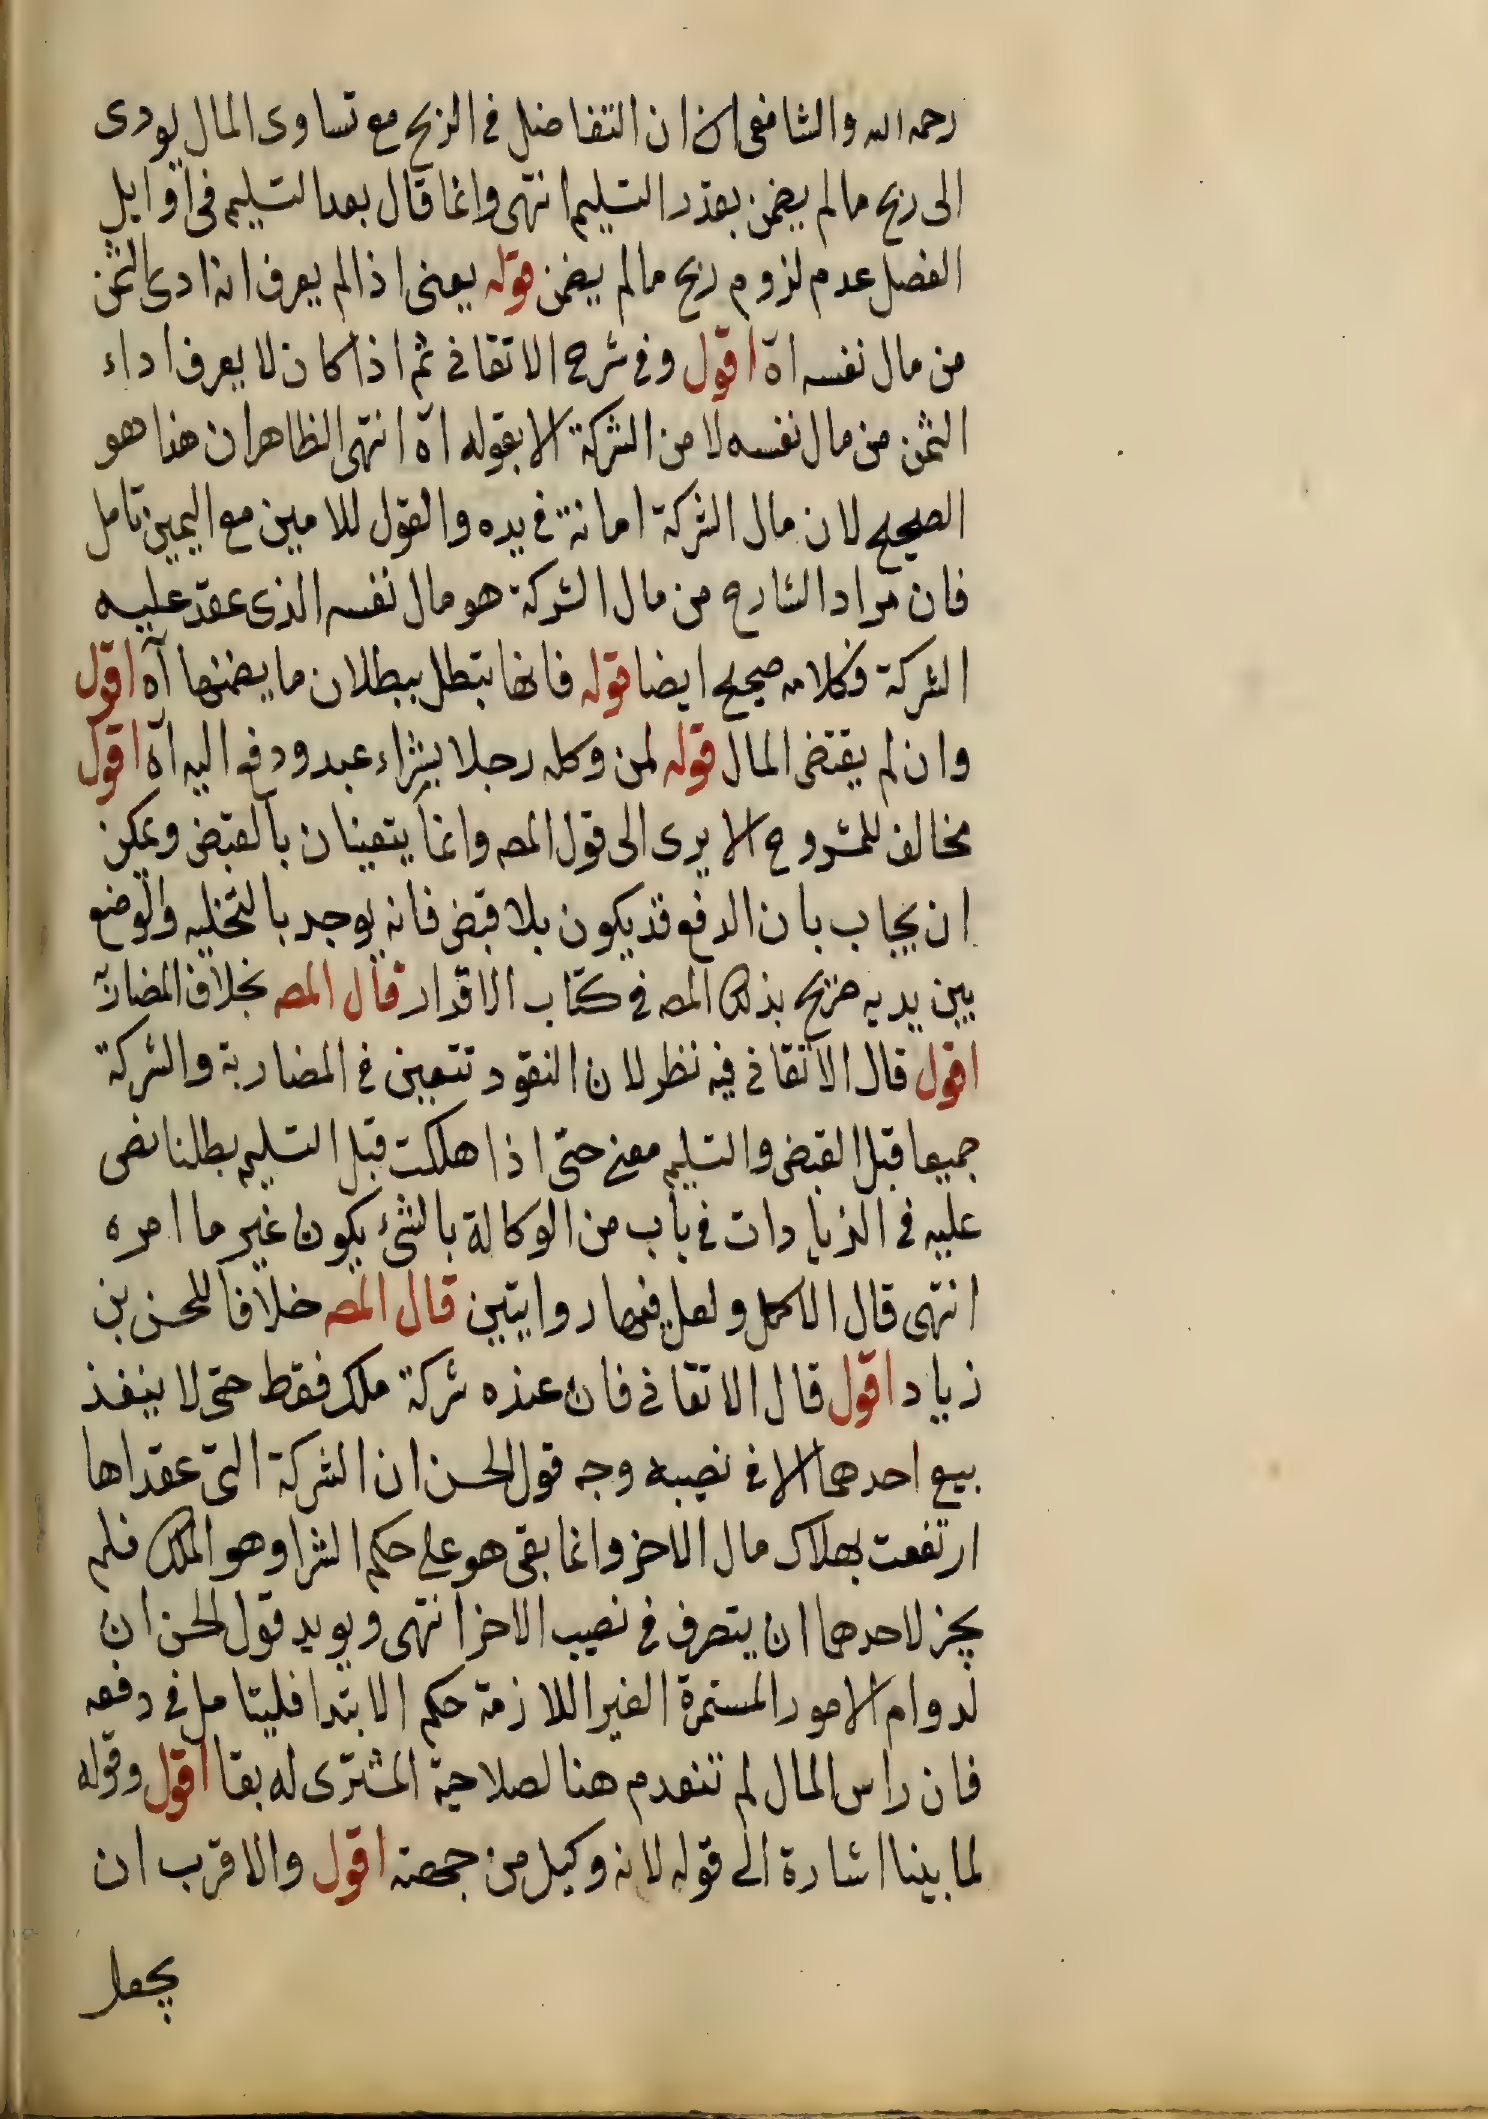 رحمه الله والشافعى لان ان التفاضل فى الربح مع تساوى المال يودى
الى ربح مالم يضمن بعقد ر التسليم انتهى وانما قال بعد التسليم فى اوايل
الفصل عدم لزوم ربح مالم يضمن قوله يعنى اذالم يعرف انه ادى الثمن
من مال نفسه اه اقول وفى شرح الاتقانى ثم اذا كان لا يعرف اداء
الثمن من مال نفسه لا من الشركة الا بقوله اه انتهى الظاهر ان هذا هو
الصحيح لان مال الشركة امانة فى يده والقول للامين مع اليمين تامل
فان مراد الشارح من مال الشركة هو مال نفسه الذى عقد عليه
الشركة فكلامه صحيح ايضا قوله فانها تبطل ببطلان ما يضمنها اه اقول
وان لم يقتض المال قوله لمن وكله رجلا بشراء عبد ودفع اليه اه اقول
مخالف للمشروح الا يرى الى قول المصه وانما يتعينان بالقبض ويمكن
ان يجاب بان الدفع قد يكون بلا قبض فانه يوجد بالتخليه والوضع
بين يديه صرح بذلك المصه فى كتاب الاقرار قال المصه بخلاف المضاربه
اقول قال الاتقانى فيه نظر لان النقود تتعين فى المضاربة والشركة
جميعا قبل القبض والتسليم معنى حتى اذا هلكت قبل التسليم بطلنا نص
عليه فى الزيادات فى باب من الوكالة بالشئ يكون غير ما امره
انتهى قال الاكمل ولعل فيهما روايتين قال المصه خلافا للحسن بن
زياد اقول قال الاتقانى فان عنده شركة ملك فقط حتى لا ينفذ
بيع احدهما الا فى نصيبه وجه قول الحسن ان الشركة التى عقداها
ارتفعت بهلاك مال الاخر وانما بقى هو على حكم الشرا وهو الملك فلم
يجز لاحدهما ان يتصرف فى نصيب الاخر انتهى ويويد قول الحسن ان
لدوام الامور المستمرة الغير اللازمة حكم الابتدا فليتامل فى دفعه
فان راس المال لم تنعدم هنا لصلاحية المشترى له بقا اقول وقوله
لما بينا اشارة الى قوله لانه وكيل من جهته اقول والاقرب ان
يجعل